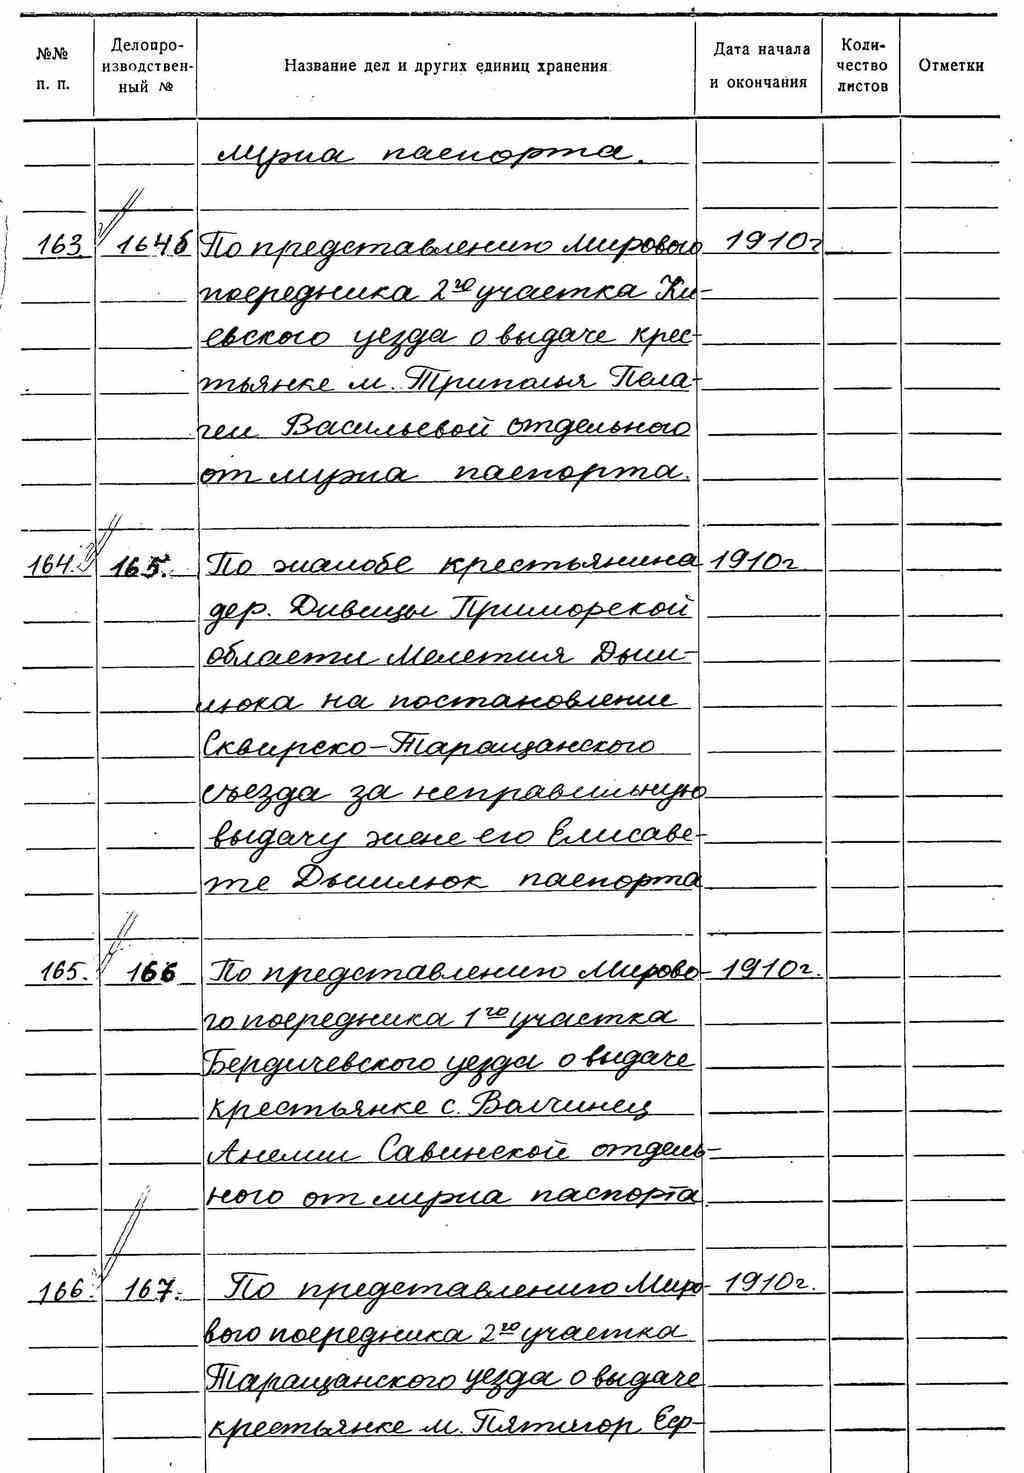 №№ п. п. Делопроизводственный № Название дел и других единиц хранения Дата начала и окончания Количество листов Отметки
мужа паспорта.
163. 164б По представлению Мирового 1910г
посредника 2го участка Ки-
евского уезда о выдаче крес-
тьянке м. Триполья Пела-
геи Васильевой отдельного
от мужа паспорта.
164. 165. По жалобе крестьянина 1910г
дер. Дивицы Приморской
области Мелетия Дыш-
люка на постановление
Сквирско-Таращанского
съезда за неправильную
выдачу жене его Елисаве-
те Дышлюк паспорта
165. 166 По представлению Мирово- 1910г.
го посредника 1го участка
Бердичевского уезда о выдаче
крестьянке с. Волчинец
Анелии Савинской отдель-
ного от мужа паспорта
166. 167. По представлению Миро- 1910г.
вого посредника 2го участка
Таращанского уезда о выдаче
крестьянке м. Пятигор Еф-